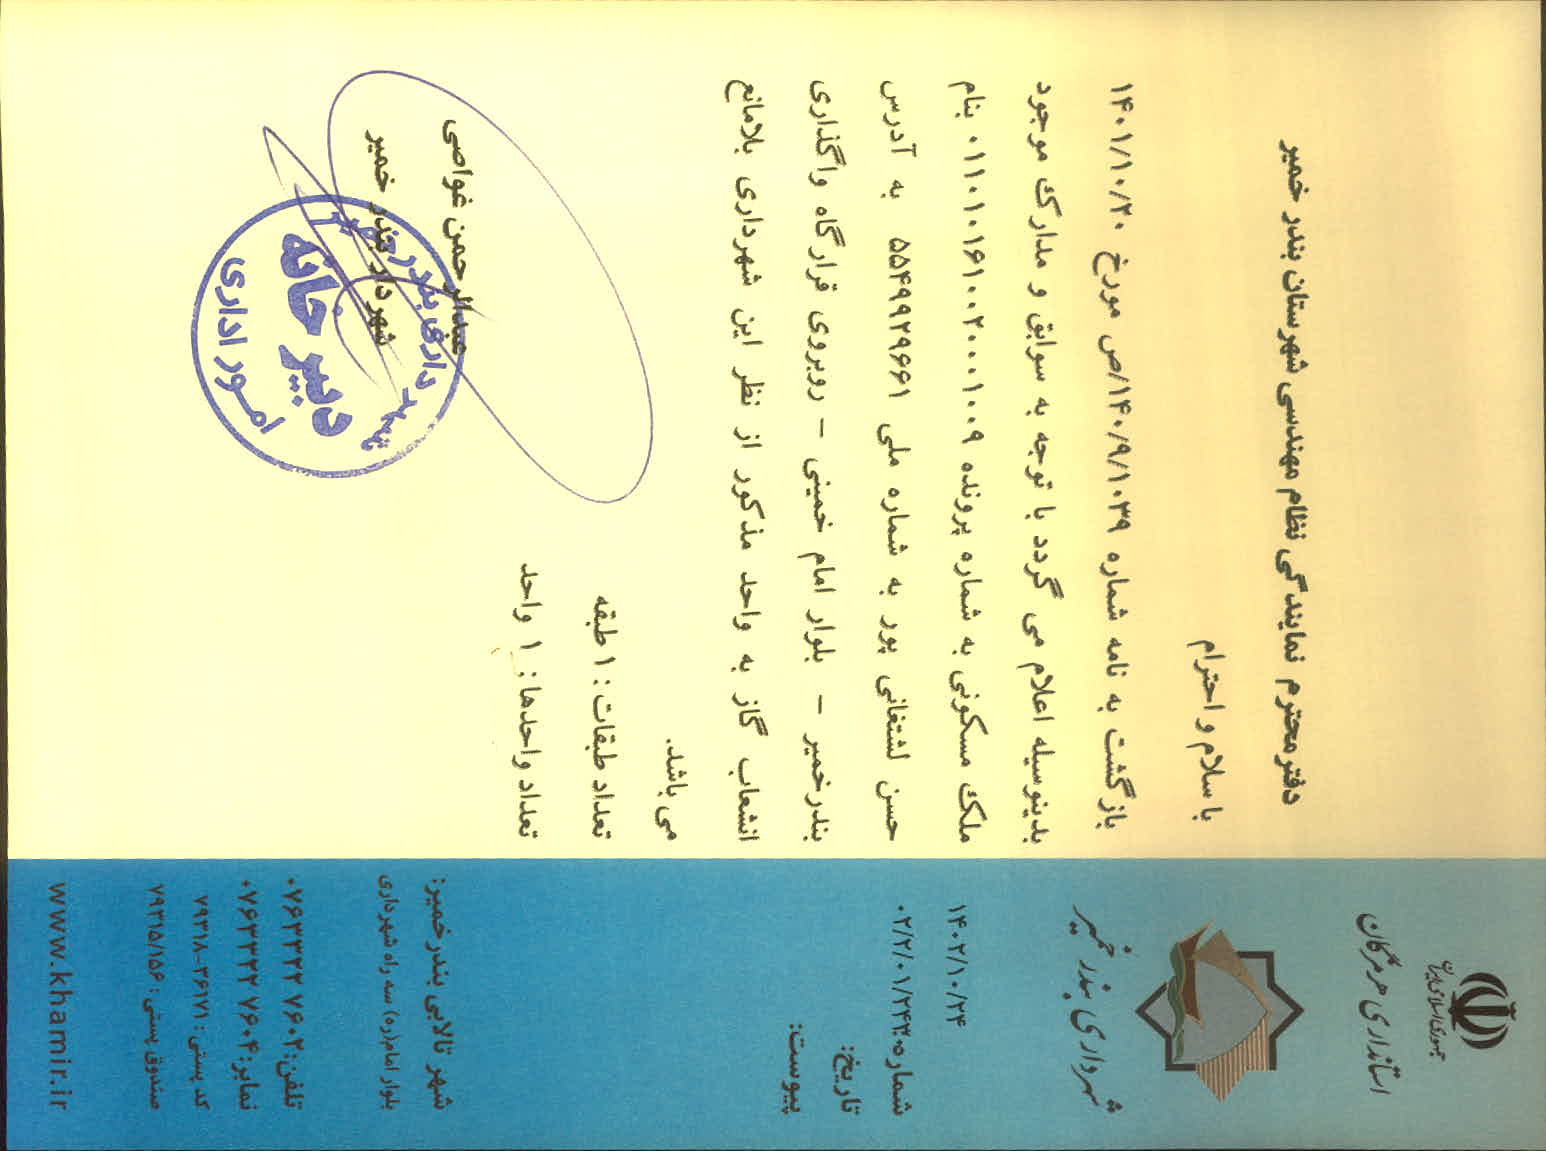 جمهوری اسلامی ایران
استانداری هرمزگان
شهرداری بندر خمیر
۱۴۰۲/۱۰/۲۴
شماره: ۰۲/۲/۰۱/۲۴۳۰
تاریخ:
پیوست:
دفتر محترم نمایندگی نظام مهندسی شهرستان بندر خمیر
با سلام و احترام
بازگشت به نامه شماره ۱۴۰/۹/۱۰۳۹/ص مورخ ۱۴۰۱/۱۰/۲۰
بدینوسیله اعلام می گردد با توجه به سوابق و مدارک موجود
ملک مسکونی به شماره پرونده ۰۱۱۰۱۰۱۶۱۰۰۲۰۰۰۱۰۰۹ بنام
حسن لشتغانی پور به شماره ملی ۵۵۴۹۹۲۹۶۶۱ به آدرس
بندرخمیر – بلوار امام خمینی – روبروی قرارگاه واگذاری
انشعاب گاز به واحد مذکور از نظر این شهرداری بلامانع
می باشد.
تعداد طبقات : ۱ طبقه
تعداد واحدها : ۱ واحد
عبدالرحمن غواصی
شهردار بندر خمیر
شهرداری بندر خمیر
دبیر خانه
امور اداری
شهر تالابی بندر خمیر:
بلوار امام(ره) سه راه شهرداری
تلفن: ۰۷۶۳۳۲۲ ۷۶۰۲
نمابر: ۰۷۶۳۳۲۲ ۷۶۰۴
کد پستی : ۷۹۳۱۸-۲۶۱۷۱
صندوق پستی : ۷۹۳۱۵/۱۵۶
www.khamir.ir